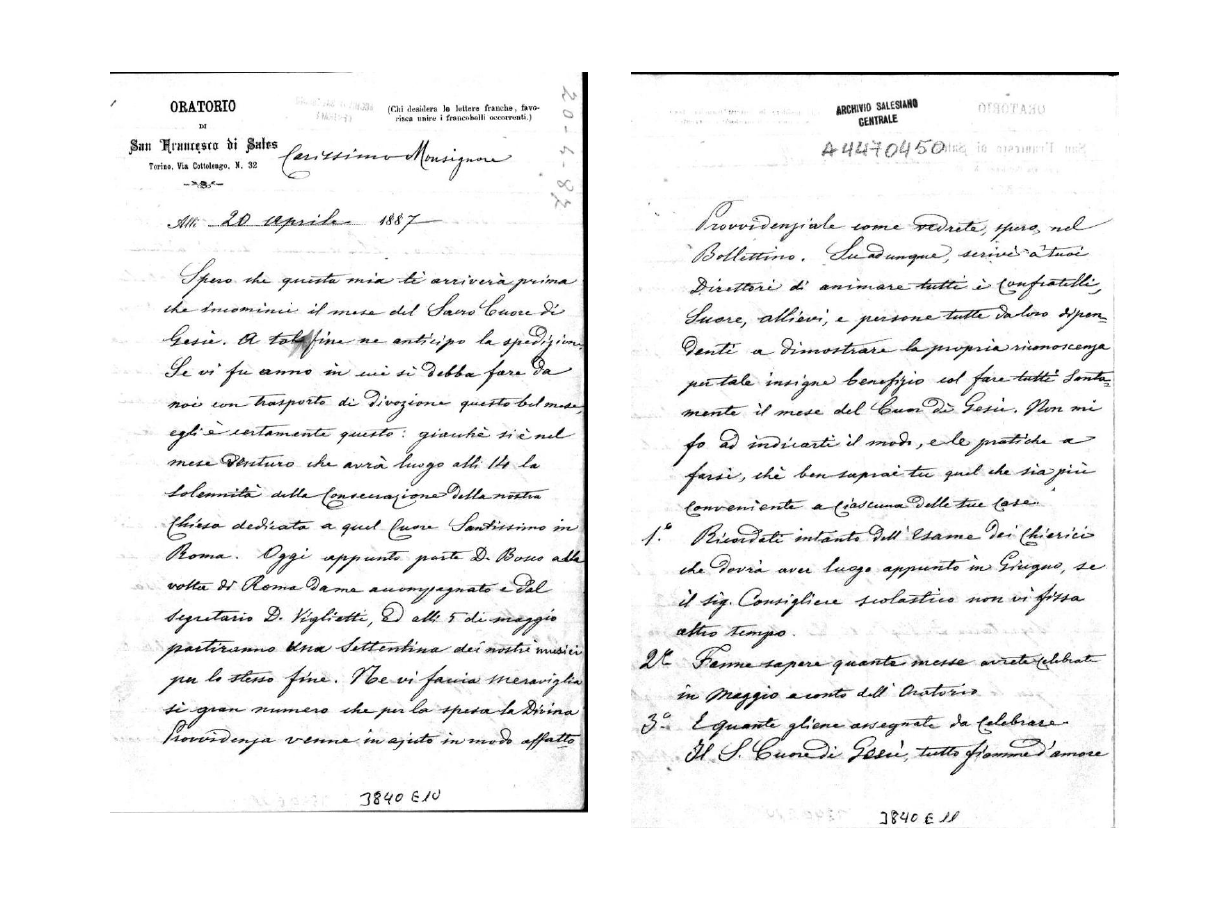 ORATORIO
DI
San Francesco di Sales
Torino, Via Cottolengo, N. 32
(Chi desidera le lettere franche, favo-
risca unire i francobolli occorrenti.)
20-4-87
Carissimo Monsignore
Alli 20 Aprile 1887
Spero che questa mia ti arriverà prima
che incominci il mese del Sacro Cuore di
Gesù. A tale fine ne anticipo la spedizione.
Se vi fu anno in cui si debba fare da
noi con trasporto di divozione questo bel mese,
egli è certamente questo: giacchè si è nel
mese venturo che avrà luogo alli 14 la
solennità della Consecrazione della nostra
Chiesa dedicata a quel Cuore Santissimo in
Roma. Oggi appunto parte D. Bosco alla
volta di Roma da me accompagnato e dal
segretario D. Viglietti, ed alli 5 di maggio
partiranno una Settentina dei nostri musici
per lo stesso fine. Ne vi faccia meraviglia
si gran numero che per la spesa la Divina
Provvidenza venne in ajuto in modo affatto
3840 E10
ARCHIVIO SALESIANO
CENTRALE
A4470450
Provvidenziale come vedrete, spero, nel
Bollettino. Su adunque, scrivi a' tuoi
Direttori di animare tutti i Confratelli,
Suore, allievi, e persone tutte da loro dipen-
denti a dimostrare la propria riconoscenza
per tale insigne benefizio col fare tutti Santa-
mente il mese del Cuor di Gesù. Non mi
fo ad indicarti il modo, e le pratiche a
farsi, chè ben saprai tu quel che sia più
conveniente a ciascuna delle tue Case.
1.° Ricordati intanto dell'Esame dei Chierici
che dovrà aver luogo appunto in Giugno, se
il sig. Consigliere scolastico non vi fissa
altro tempo.
2° Fanne sapere quante messe avrete celebrate
in Maggio a conto dell'Oratorio
3° E quante gliene assegnate da celebrare.
Il S. Cuore di Gesù, tutto fiamme d'amore
3840 E11